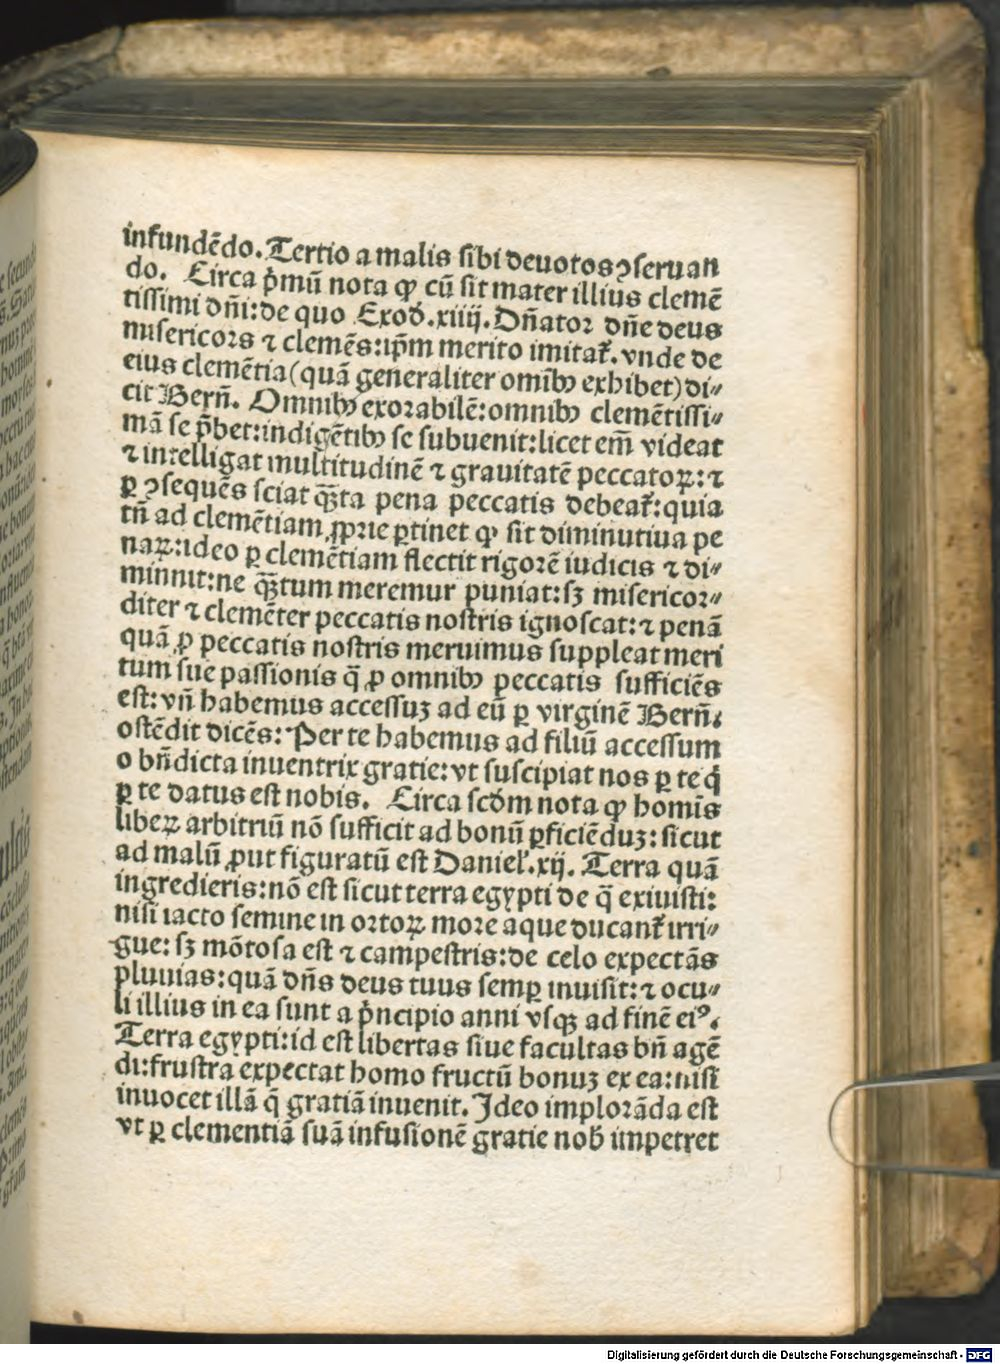 infundēdo. Tertio a malis sibi deuotos ꝯseruan
do. Circa p̄mū nota ꝙ cū sit mater illius clemē
tissimi dn̄i: de quo Exod̄. xiiij. Dn̄ator dn̄e deus
misericors ⁊ clemēs: ip̄m merito imitat᷑. vnde de
eius clemētia (quā generaliter omībꝰ exhibet) di⸗
cit Bern̄. Omnibꝰ exorabilē: omnibꝰ clemētissi⸗
mā se p̄bet: indigētibꝰ se subuenit: licet em̄ videat
⁊ intelligat multitudinē ⁊ grauitatē peccatoꝝ: ⁊
ꝑ ꝯsequēs sciat qȝ̄ta pena peccatis debeat᷑: quia
tn̄ ad clemētiam ꝓprie ꝑtinet ꝙ sit diminutiua pe
naꝝ: ideo ꝑ clemētiam flectit rigorē iudicis ⁊ di⸗
minuit: ne qȝ̄tum meremur puniat: sȝ misericor⸗
diter ⁊ clemēter peccatis nostris ignoscat: ⁊ penā
quā ꝓ peccatis nostris meruimus suppleat meri
tum sue passionis q̄ ꝓ omnibꝰ peccatis sufficiēs
est: vn̄ habemus accessuȝ ad eū ꝑ virginē Bern̄.
ostēdit dicēs: Per te habemus ad filiū accessum
o bn̄dicta inuentrix gratie: vt suscipiat nos ꝑ te q̇
ꝑ te datus est nobis. Circa scd̄m nota ꝙ homīs
libeꝝ arbitriū nō sufficit ad bonū ꝑficiēduȝ: sicut
ad malū ꝓut figuratū est Daniel̄. xij. Terra quā
ingredieris: nō est sicut terra egypti de q̄ exiuisti:
nisi iacto semine in ortoꝝ more aque ducant᷑ irri⸗
gue: sȝ mōtosa est ⁊ campestris: de celo expectās
pluuias: quā dn̄s deus tuus semꝑ inuisit: ⁊ ocu⸗
li illius in ea sunt a p̄ncipio anni vsqȝ ad finē eiꝰ.
Terra egypti: id est libertas siue facultas bn̄ agē
di: frustra expectat homo fructū bonuȝ ex ea: nisi
inuocet illā q̄ gratiā inuenit. Ideo implorāda est
vt ꝑ clementiā suā infusionē gratie nob̄ impetret
Digitalisierung gefördert durch die Deutsche Forschungsgemeinschaft - DFG